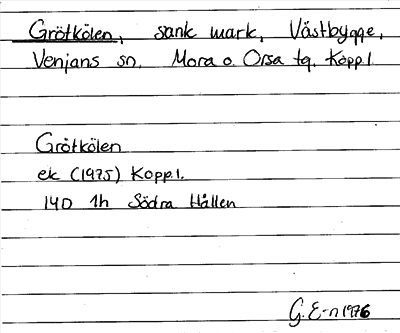 Grötkölen, sank mark, Västbygge,
Venjans sn. Mora o. Orsa tg. Koppl
Grötkölen
ek (1975) Koppl.
14D 1h Södra Hållen
G. E-n 1976